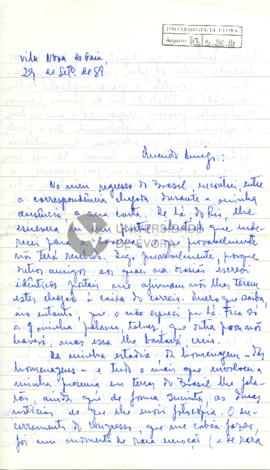 UNIVERSIDADE DE ÉVORA
Arquivo
Vila Nova de Gaia,
29 de Set.º de 89
Querido Amigo:
No meu regresso do Brasil, encontrei, entre
a correspondência chegada durante a minha
ausência, a sua carta. De lá, do Rio, lhe
escrevera eu um postal, postal que
para
provavelmente
não terá recebido. Digo provavelmente, porque
outros amigos aos quais na ocasião escrevi
idênticos postais me afirmam não lhes terem
estes chegado à caixa do correio. Quero que saiba,
no entanto, que o não esqueci por lá. Fica só
a minha palavra, talvez, que outra prova não
haverá, mas essa lhe bastará, creio.
Da minha estadia, da homenagem - das
homenagens - e tudo o mais que envolveu a
minha presença em terras do Brasil lhe
ainda que de forma sucinta, as duas
notícias de que lhe envio fotocópia. O
encerramento do congresso, que me coube fazer,
foi um momento de rara emoção (e de rara
UNIVERSIDADE
DE ÉVORA